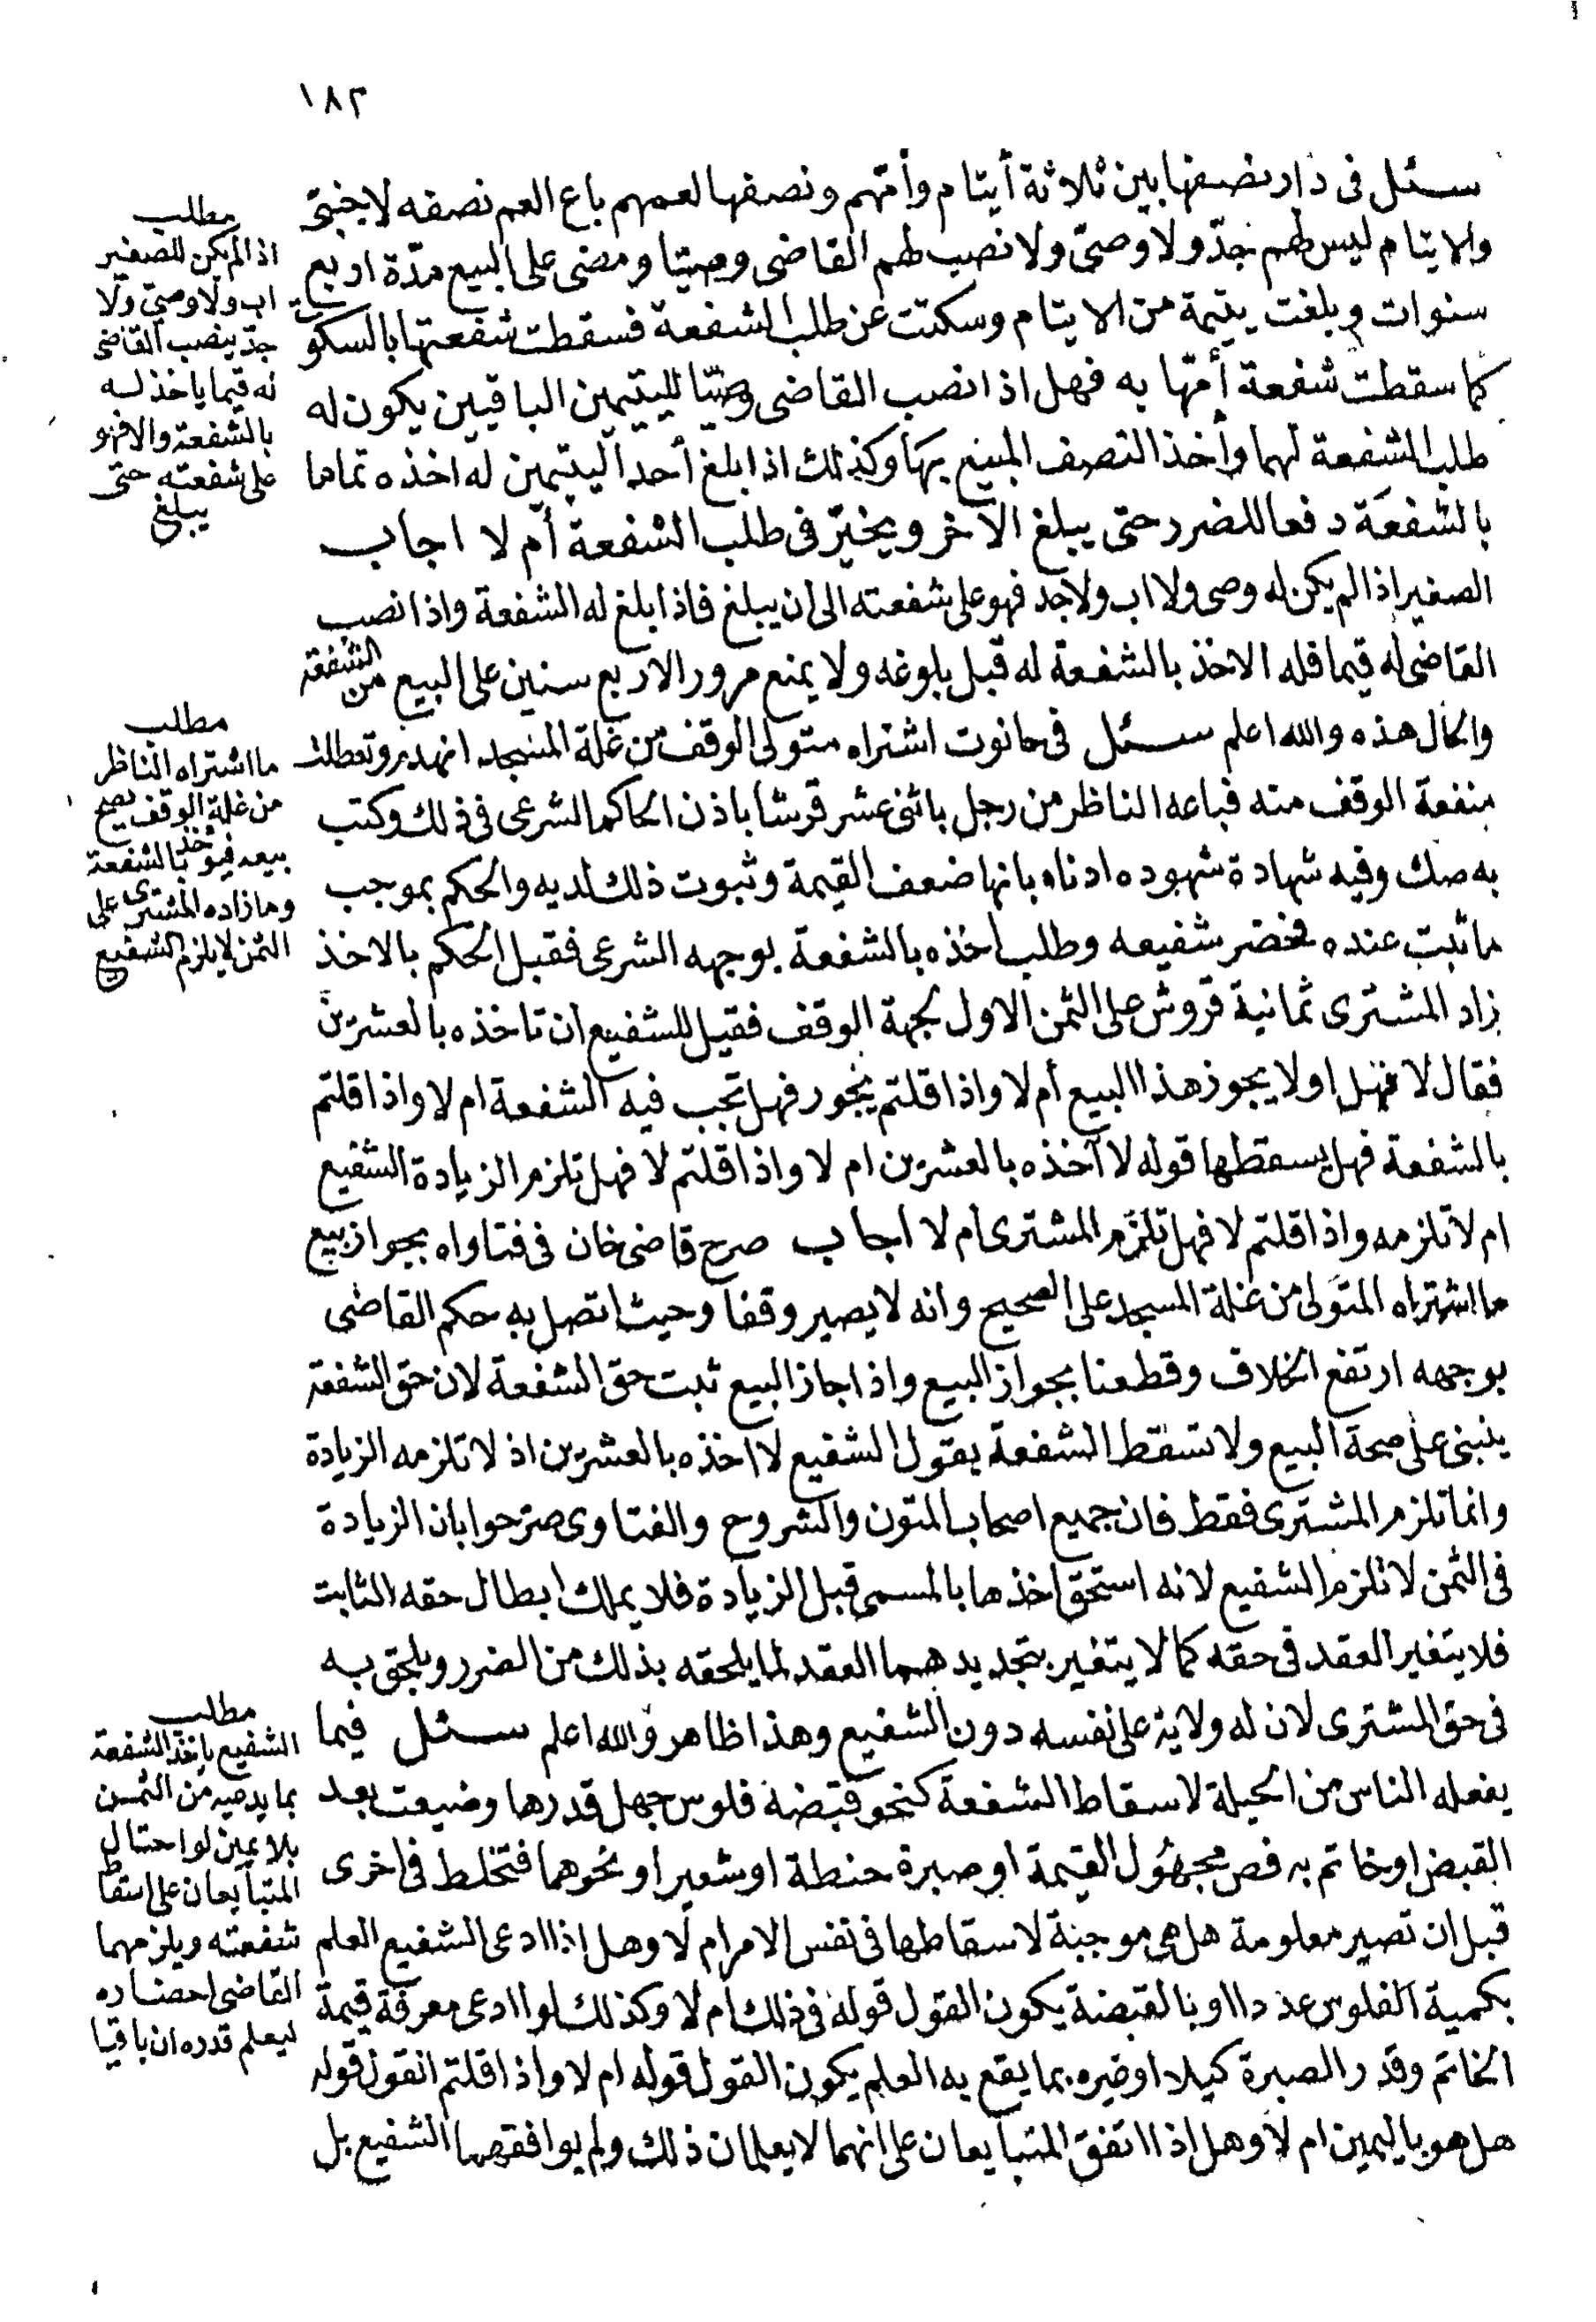 ١٨٢
سئل فى دار نصفها بين ثلاثة أيتام وأمّهم ونصفها لعمهم باع العم نصفه لاجنبىّ
والايتام ليس لهم جدّ ولا وصىّ ولا نصب لهم القاضى وصيّا ومضى على البيع مدّة اربع
سنوات وبلغت يتيمة من الايتام وسكتت عن طلب الشفعة فسقطت شفعتها بالسكوت
كما سقطت شفعة أمّها به فهل اذا نصب القاضى وصيّا لليتيمين الباقيين يكون له
طلب الشفعة لهما وأخذ النصف المبيع بها وكذلك اذا بلغ أحد اليتيمين له اخذه تماما
بالشفعة دفعا للضرر حتى يبلغ الآخر ويخيّر فى طلب الشفعة أم لا اجاب
الصغير اذا لم يكن له وصى ولا اب ولا جد فهو على شفعته الى ان يبلغ فاذا بلغ له الشفعة واذا نصب
القاضى له قيما فله الاخذ بالشفعة له قبل بلوغه ولا يمنع مرور الاربع سنين على البيع من الشفعة
والحال هذه والله اعلم سئل فى حانوت اشتراه متولى الوقف من غلة المسجد انهدم وتعطلت
منفعة الوقف منه فباعه الناظر من رجل باثنى عشر قرشا باذن الحاكم الشرعى فى ذلك وكتب
به صك وفيه شهادة شهوده ادناه بانها ضعف القيمة وثبوت ذلك لديه والحكم بموجب
ما ثبت عنده فحضر شفيعه وطلب أخذه بالشفعة بوجهه الشرعى فقبل الحكم بالاخذ
زاد المشترى ثمانية قروش على الثمن الاول لجهة الوقف فقيل للشفيع ان تاخذه بالعشرين
فقال لا فهل اولا يجوز هذا البيع أم لا واذا قلتم يجوز فهل تجب فيه الشفعة ام لا واذا قلتم
بالشفعة فهل يسقطها قوله لا آخذه بالعشرين ام لا واذا قلتم لا فهل تلزم الزيادة الشفيع
ام لا تلزمه واذا قلتم لا فهل تلزم المشترى ام لا اجاب صرح قاضى خان فى فتاواه بجواز بيع
ما اشتراه المتولى من غلة المسجد على الصحيح وانه لا يصير وقفا وحيث اتصل به حكم القاضى
بوجهه ارتفع الخلاف وقطعنا بجواز البيع واذا جاز البيع ثبت حق الشفعة لان حق الشفعة
ينبنى على صحة البيع ولا تسقط الشفعة بقول الشفيع لا اخذه بالعشرين اذ لا تلزمه الزيادة
وانما تلزم المشترى فقط فان جميع اصحاب المتون والشروح والفتاوى صرّحوا بان الزيادة
فى الثمن لا تلزم الشفيع لانه استحق اخذها بالمسمى قبل الزيادة فلا يملك ابطال حقه الثابت
فلا يتغير العقد فى حقه كما لا يتغير بتجديدهما العقد لما يلحقه بذلك من الضرر ويلحق به
فى حق المشترى لان له ولاية على نفسه دون الشفيع وهذا ظاهر والله اعلم سئل فيما
يفعله الناس من الحيلة لاسقاط الشفعة كنحو قبضة فلوس جهل قدرها وضيعت بعد
القبض او خاتم به فص مجهول القيمة او صبرة حنطة او شعير او نحوهما فتخلط فى اخرى
قبل ان تصير معلومة هل هى موجبة لاسقاطها فى نفس الامر ام لا وهل اذا ادعى الشفيع العلم
بكمية الفلوس عددا او بالقبضة يكون القول قوله فى ذلك ام لا وكذلك لو ادعى معرفة قيمة
الخاتم وقدر الصبرة كيلا او غيره بما يقع به العلم يكون القول قوله ام لا واذا قلتم القول قوله
هل هو باليمين ام لا وهل اذا اتفق المتبايعان على انهما لا يعلمان ذلك ولم يوافقهما الشفيع بل
مطلب
اذا لم يكن للصغير
اب ولا وصىّ ولا
جدّ ينصب القاضى
له قيما ياخذ له
بالشفعة والا فهو
على شفعته حتى
يبلغ
مطلب
ما اشتراه الناظر
من غلة الوقف يصح
بيعه فيؤخذ بالشفعة
وما زاده المشترى على
الثمن لا يلزم الشفيع
مطلب
الشفيع ياخذ الشفعة
بما يدعيه من الثمن
بلا يمين لو احتال
المتبايعان على اسقاط
شفعته ويلزمهما
القاضى احضاره
ليعلم قدره ان باقيا